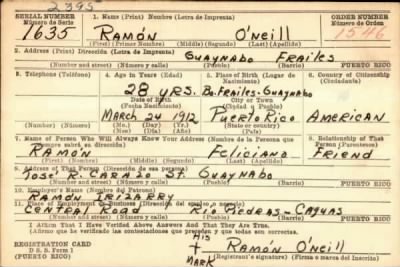 2395
SERIAL NUMBER 1. Name (Print) Nombre (Letra de Imprenta) ORDER NUMBER
Número de Serie Número de Orden
1635 RAMÓN O'Neill 1546
(First) (Primer Nombre) (Middle) (Segundo) (Last) (Apellido)
2. Address (Print) Dirección (Letra de Imprenta)
GUAYNABO FRAILES
(Number and street) (Número y calle) (Pueblo) (Barrio) PUERTO RICO
3. Telephone (Teléfono) 4. Age in Years (Edad) 5. Place of Birth (Lugar de Nacimiento) 6. Country of Citizenship (Ciudadanía)
28 YRS. Bo. FRAILES-GUAYNABO
Date of Birth City or Town
(Fecha Nacimiento) (Ciudad o Pueblo)
MARCH 24 1912 PUERTO RICO AMERICAN
(Mo.) (Day) (Yr.) (State or country)
(Mes) (Día) (Año) (Estado o país)
7. Name of Person Who Will Always Know Your Address (Nombre de la Persona que siempre sabrá su dirección) 8. Relationship of That Person (Parentesco)
RAMÓN Feliciano FRIEND
(First) (Nombre) (Middle) (Segundo) (Last) (Apellido)
9. Address of That Person (Dirección de esa persona)
JOSÉ R. CARAZO ST. GUAYNABO
(Number and street) (Número y calle) (Pueblo) (Barrio) PUERTO RICO
10. Employer's Name (Nombre del Patrono)
RAMÓN IRIZARRY
11. Place of Employment or Business (Dirección del empleo o negocio)
CENTRAL ROAD RIO PIEDRAS-CAGUAS
(Number and street) (Número y calle) (Pueblo) (Barrio) PUERTO RICO
I Affirm That I Have Verified Above Answers and That They Are True.
(Afirmo que he verificado las contestaciones que preceden y que todas son correctas.)
HIS
REGISTRATION CARD RAMÓN O'Neill
D. S. S. Form 1 (Registrant's signature) (Firma o marca del inscrito)
(Puerto Rico) MARK